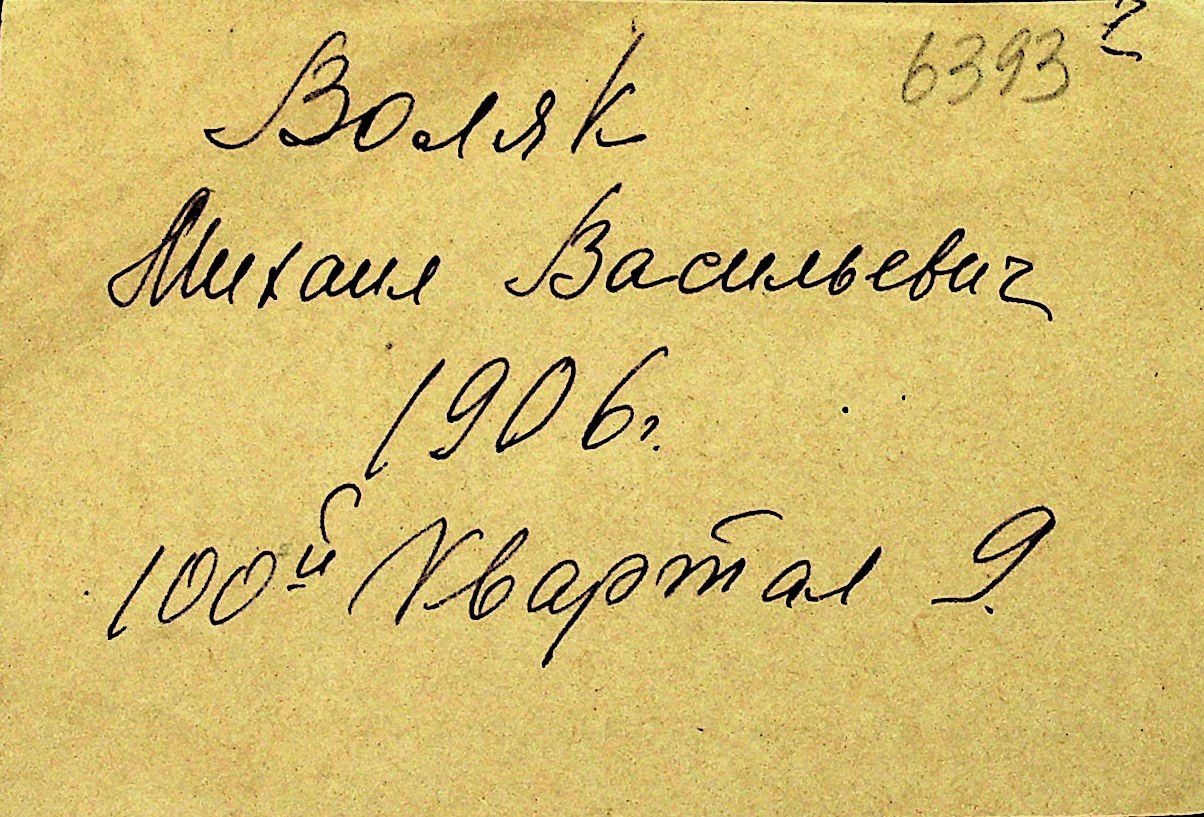 6393
Воляк
Михаил Васильевич
1906г.
100й Квартал 9.